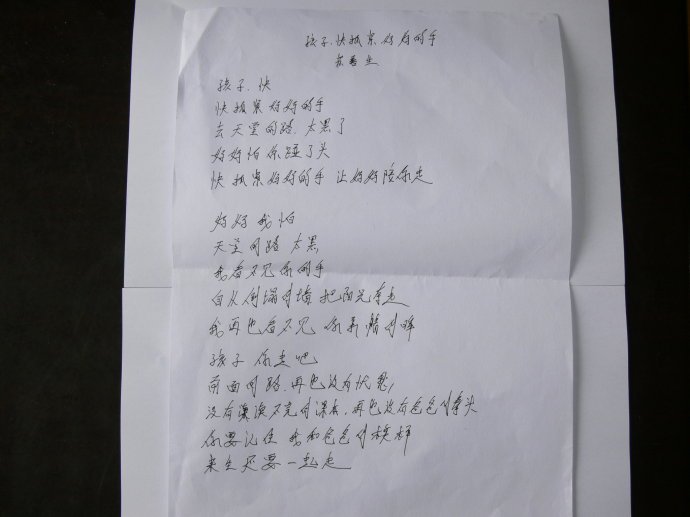 孩子.快抓紧妈妈的手
苏善生
孩子.快
快抓紧妈妈的手
去天堂的路.太黑了
妈妈怕你碰了头
快抓紧妈妈的手 让妈妈陪你走
妈妈 我怕
天堂的路 太黑
我看不见你的手
自从倒塌的墙 把阳光夺走
我再也看不见 你柔情的眸
孩子 你走吧
前面的路.再也没有忧愁
没有读不完的课本.再也没有爸爸的拳头
你要记住 我和爸爸的模样
来生还要一起走